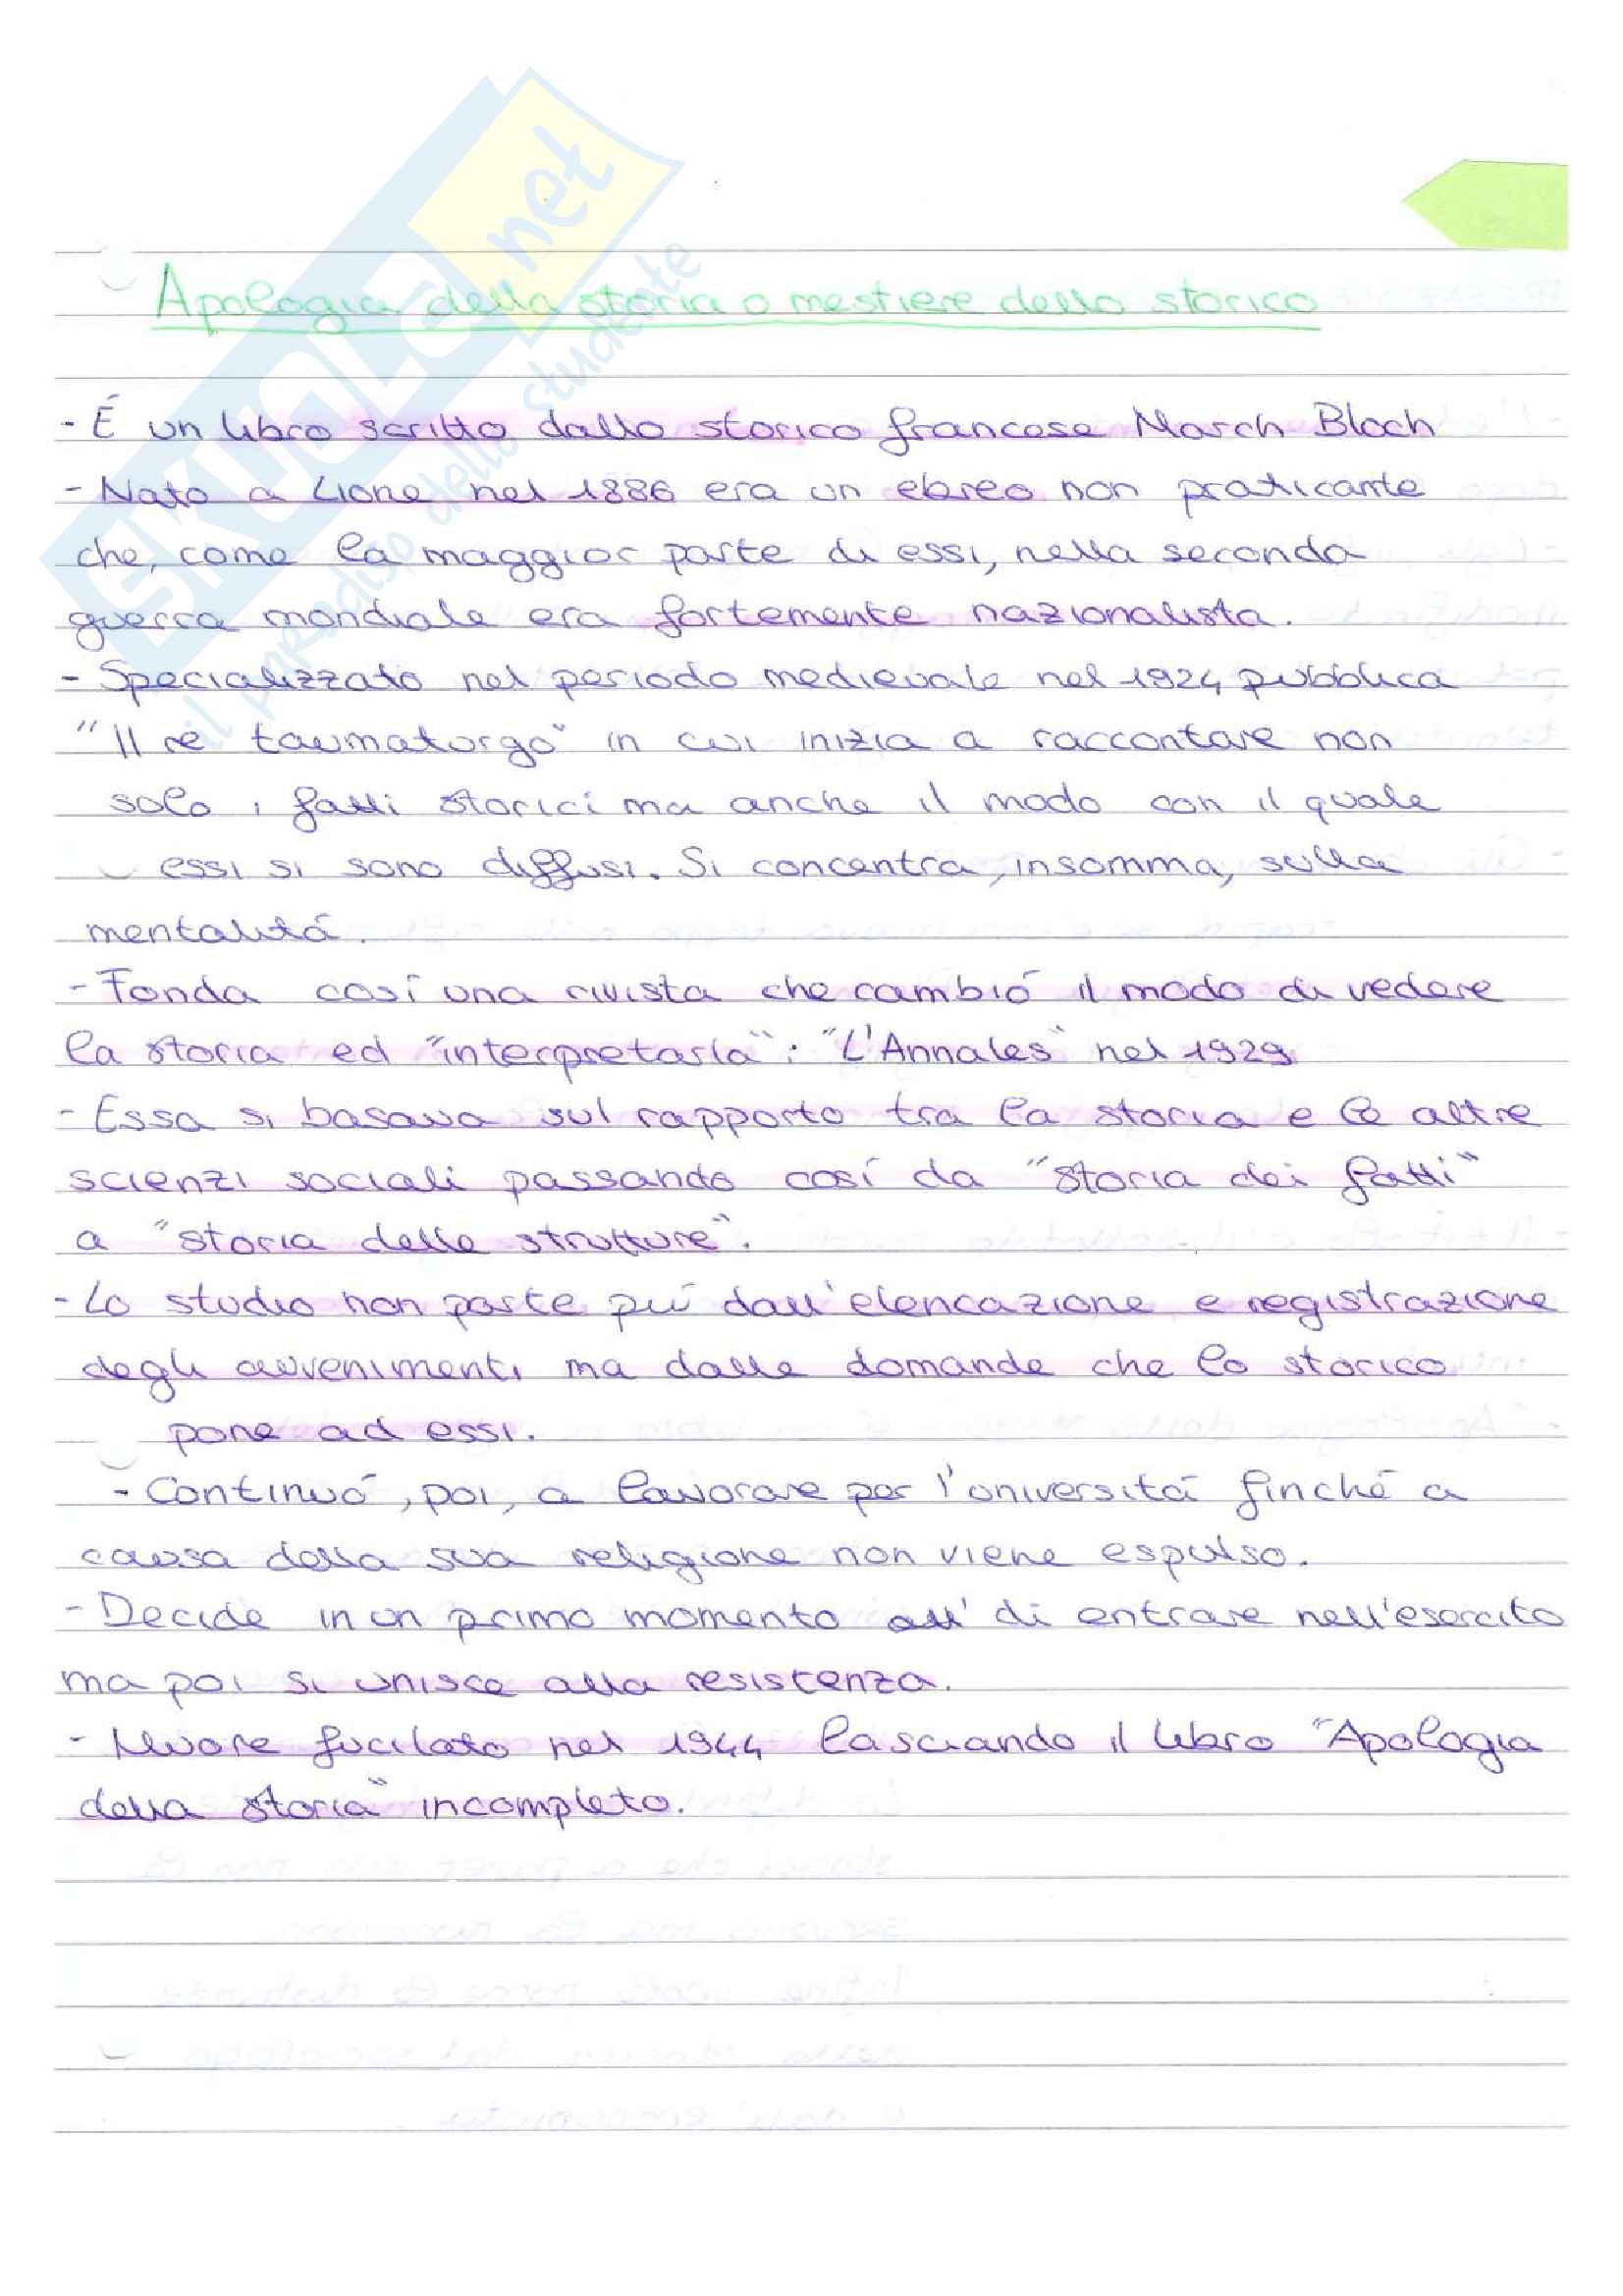 SKUOLA.net
il paradiso dello studente
Apologia della storia o mestiere dello storico
- É un libro scritto dallo storico francese March Bloch
- Nato a Lione nel 1886 era un ebreo non praticante
che, come la maggior parte di essi, nella seconda
guerra mondiale era fortemente nazionalista.
- Specializzato nel periodo medievale nel 1924 pubblica
"Il re taumaturgo" in cui inizia a raccontare non
solo i fatti storici ma anche il modo con il quale
essi si sono diffusi. Si concentra, insomma, sulla
mentalitá.
- Fonda cosí una rivista che cambió il modo di vedere
la storia ed "interpretarla": "L'Annales" nel 1929
- Essa si basava sul rapporto tra la storia e le altre
scienzi sociali passando cosí da "storia dei fatti"
a "storia delle strutture".
- Lo studio non parte piú dall'elencazione e registrazione
degli avvenimenti ma dalle domande che lo storico
pone ad essi.
- Continuó, poi, a lavorare per l'universitá finché a
causa della sua religione non viene espulso.
- Decide in un primo momento all' di entrare nell'esercito
ma poi si unisce alla resistenza.
- Muore fucilato nel 1944 lasciando il libro "Apologia
della storia" incompleto.